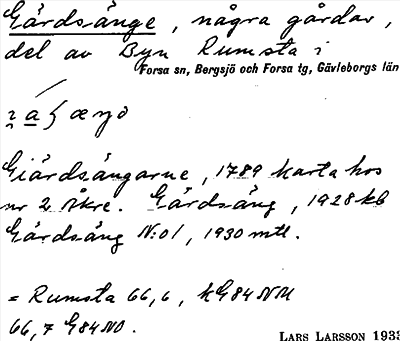 Gärdsänge, några gårdar,
del av Byn Rumsta i
Forsa sn, Bergsjö och Forsa tg, Gävleborgs län
Giärdsängarne, 1789 karta hos
nr 2 Åkre. Gärdsäng, 1928 kb
Gärdsäng N:o1, 1930 mtl.
= Rumsta 66,6, kG84NM
66,7 G84NO.
LARS LARSSON 1933